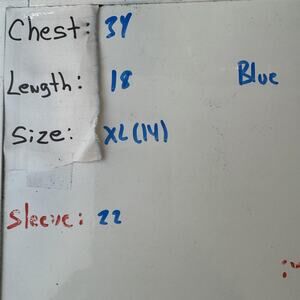 Chest: 34
Length: 18
Blue
Size: XL (14)
Sleeve: 22